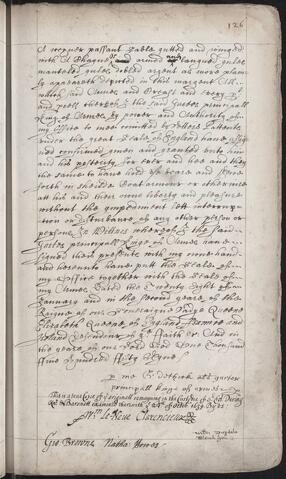 126
A wyver passant sable gutted and winged
with A
and armed and langued gules
mantelled gules dobled argent as more plain
ly apeareth depicted in this margent All
which said Armes and Creast and every pt
and percell thereof I the said Garter principall
King of Armes by power and Authority of
my office to mee committed by letters Pattents
under the great Seale of England have
confirmed given and graunted unto him
and his posterity for ever and hee and they
the same to have hold use beare and shew
forth in shielde Coat armour or otherwise
att his and their owne liberty and pleasure
without the impediment lett interrup
tion or disturbance of any other person or
persons In Witnes whereof I the said
Garter principall Kinge of Armes have
signed these presents with my owne hand
and hereunto have putt the Seale of
my Office together with the Seale of
my Armes Dated the Twenty Eight of
January and in the second yeare of the
Reigne of our Soveraigne Ladye Queene
Elizabeth Queene of England France and
Ireland Defender of the faith &c And in
the yeare of our Lord God One Thousand
five hundred fifty Nyne
p me G dethick alls garter
principall kinge of armes
This is a true Copy of the originall remayning in the Custody of
examined the 24th of Octobr 1639 By us
Wm Le Neve Clarenceux
Geo: Browne